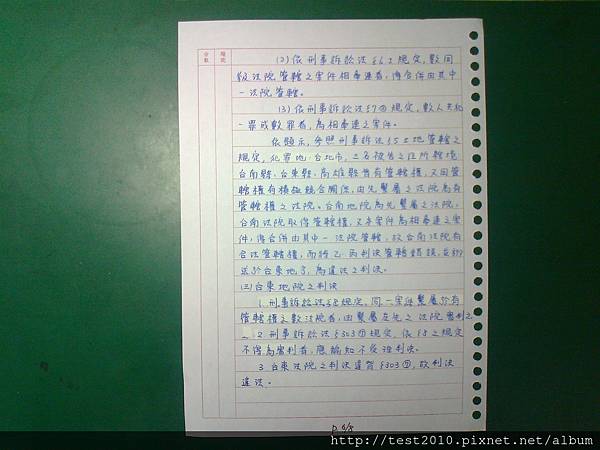 (2) 依刑事訴訟法§6Ⅰ規定,數同
級法院管轄之案件相牽連者,得合併由其中
一法院管轄。
(3) 依刑事訴訟法§7②規定,數人共犯
一罪或數罪者,為相牽連之案件。
依題示,參照刑事訴訟法§5Ⅰ土地管轄之
規定,犯罪地:台北市,三名被告之住所轄境
台南縣、台東縣、高雄縣皆有管轄權,又因管
轄權有積極競合關係,由先繫屬之法院為有
管轄權之法院。台南地院為先繫屬之法院,
台南法院取得管轄權,又本案件為相牽連之案
件,得合併由其中一法院管轄,故台南法院有
合法管轄權,而將乙、丙判決管轄錯誤,並移
送於台東地予,為違法之判決。
(三)台東地院之判決
1.刑事訴訟法§8規定,同一案件繫屬於有
管轄權之數法院者,由繫屬在先之法院審判之
2.刑事訴訟法§303⑦規定,依§8之規定
不得為審判者,應諭知不受理判決。
3.台東法院之判決違背§303⑦,故判決
違法。
http://test2010.pixnet.net/album